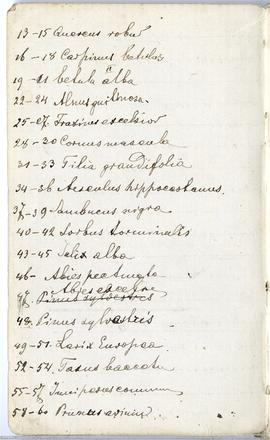 13-15 Quercus robur
16-18 Carpinus betulus
19-21 betula alba
22-24 Alnus glutinosa
25-27. Fraxinus excelsior
28-30 Cornus mascula
31-33 Tilia grandifolia
34-36 Aesculus hippocastanus.
37-39 Sambucus nigra
40-42 Sorbus torminalis
43-45 Salix alba
46- Abies pectinata
47. Abies excelsa
Pinus sylvestris
48. Pinus sylvestris
49-51. Larix Europaea
52-54. Taxus baccata
55-57 Juniperus commun
58-60 Prunus avium